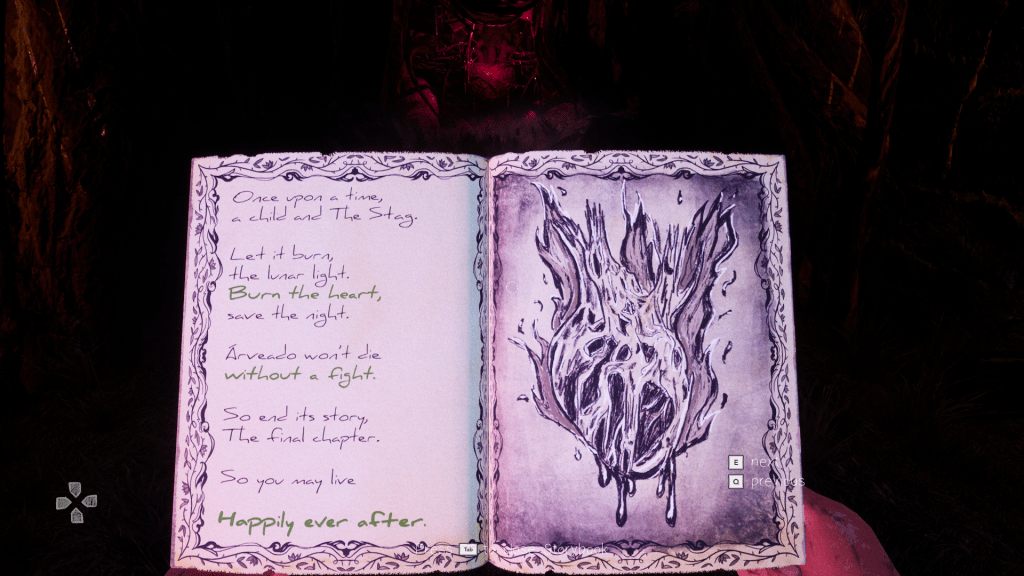 Once upon a time,
a child and The Stag.
Let it burn,
the lunar light.
Burn the heart,
save the night.
Árveado won't die
without a fight.
So end its story,
The final chapter.
So you may live
Happily ever after.
E
Q
Tab
storybook